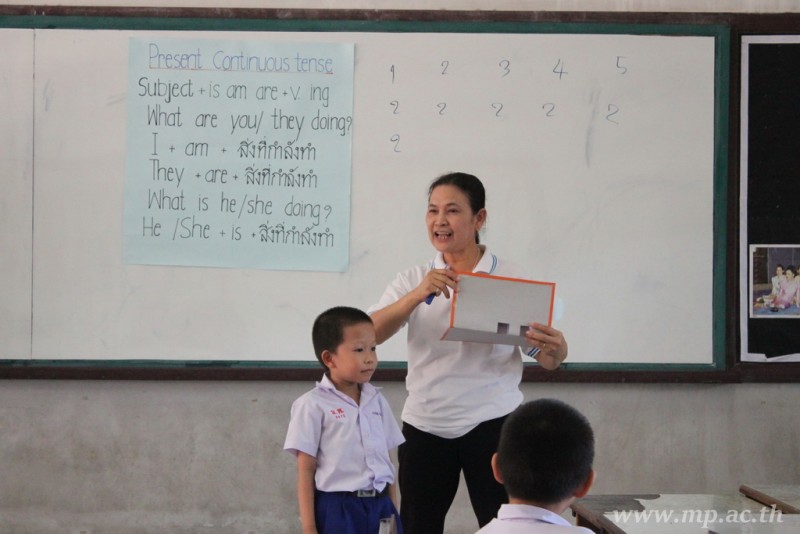 Present Continuous tense
Subject + is am are + v. ing
What are you/ they doing?
I + am + สิ่งที่กำลังทำ
They + are + สิ่งที่กำลังทำ
What is he/she doing?
He /She + is + สิ่งที่กำลังทำ
1 2 3 4 5
2 2 2 2 2
2
www.mp.ac.th